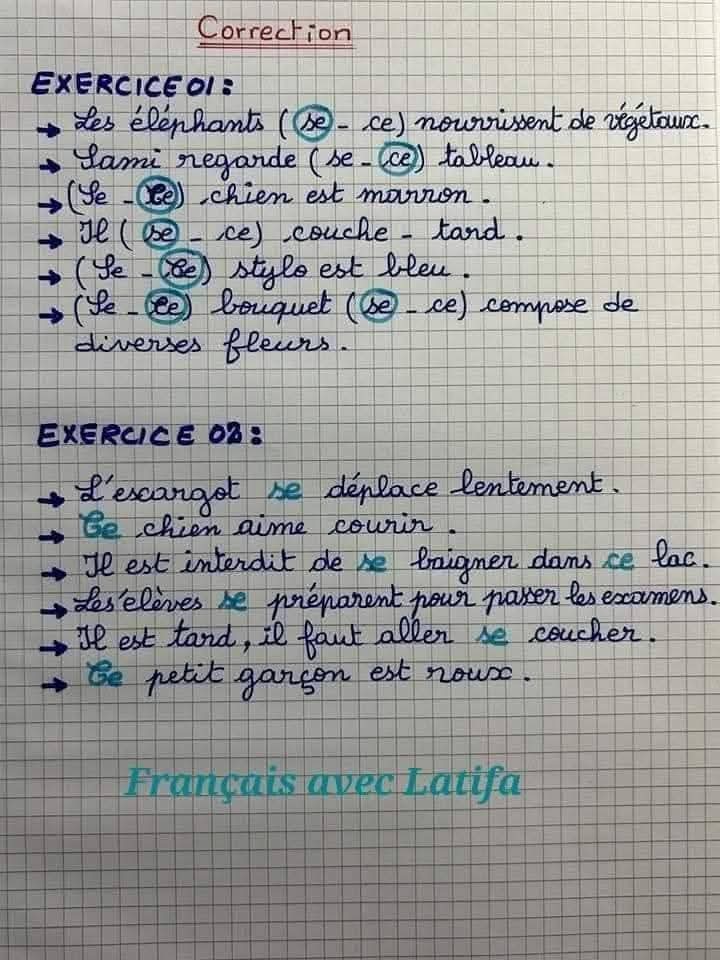 Correction
EXERCICE 01 :
→ Les éléphants (se - ce) nourrissent de végétaux.
→ Sami regarde (se - ce) tableau.
→ (Se - Ce) chien est marron.
→ Il (se - ce) couche - tard.
→ (Se - Ce) stylo est bleu.
→ (Se - Ce) bouquet (se - ce) compose de
diverses fleurs.
EXERCICE 02 :
→ L'escargot se déplace lentement.
→ Ce chien aime courir.
→ Il est interdit de se baigner dans ce lac.
→ Les'elèves se préparent pour passer les examens.
→ Il est tard, il faut aller se coucher.
→ Ce petit garçon est roux.
Français avec Latifa